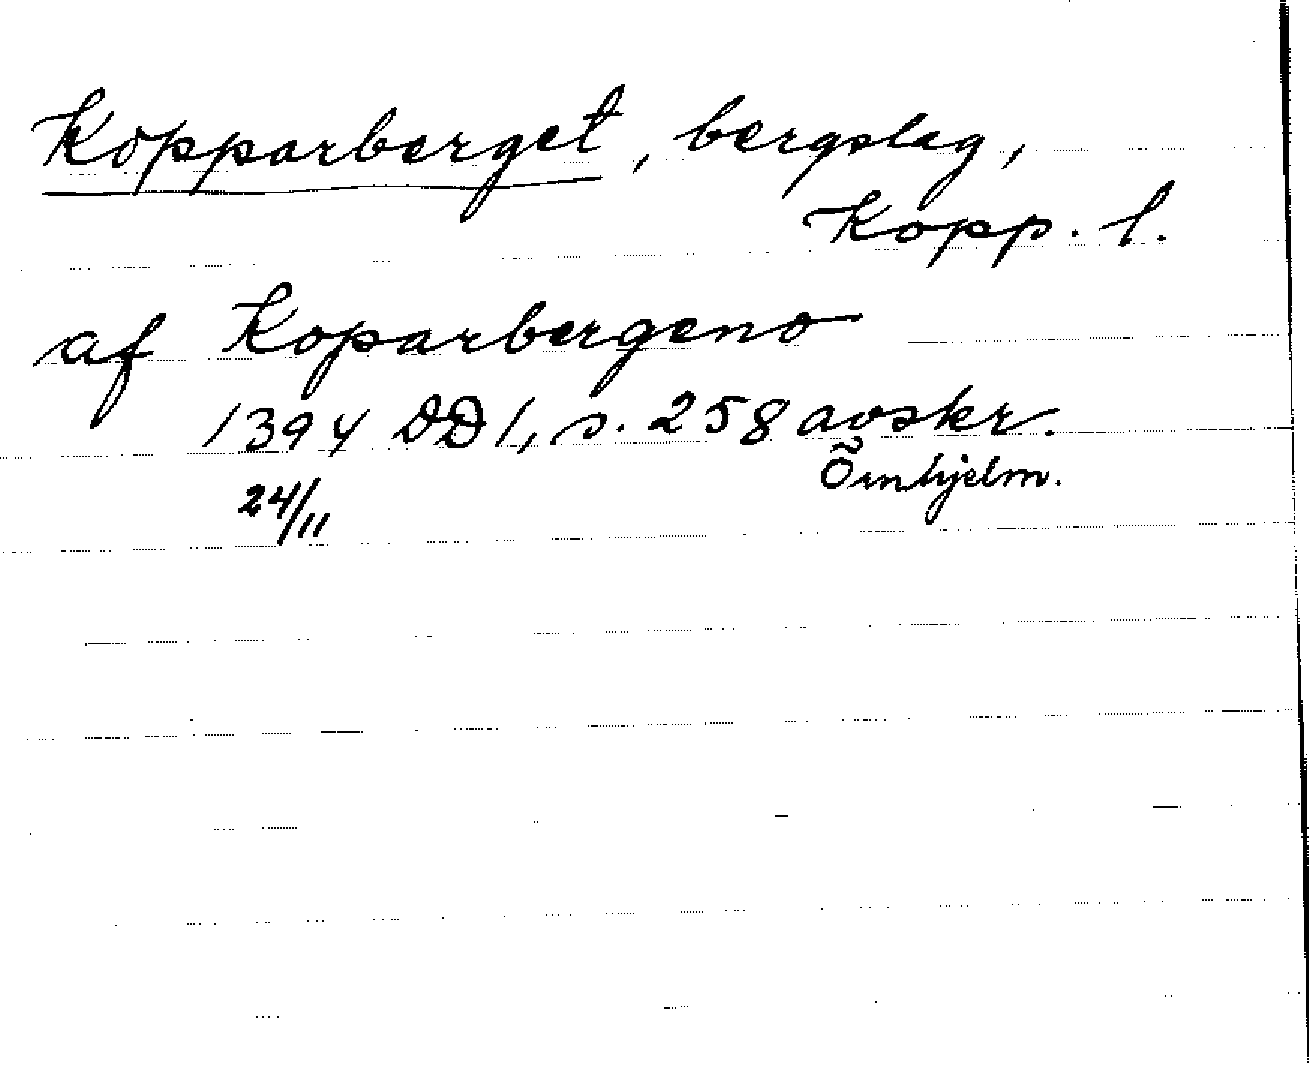 Kopparberget, bergslag,
Kopp. l.
af Koparbergeno
1394 DD 1, s. 258 avskr.
Örnhjelm.
24/11